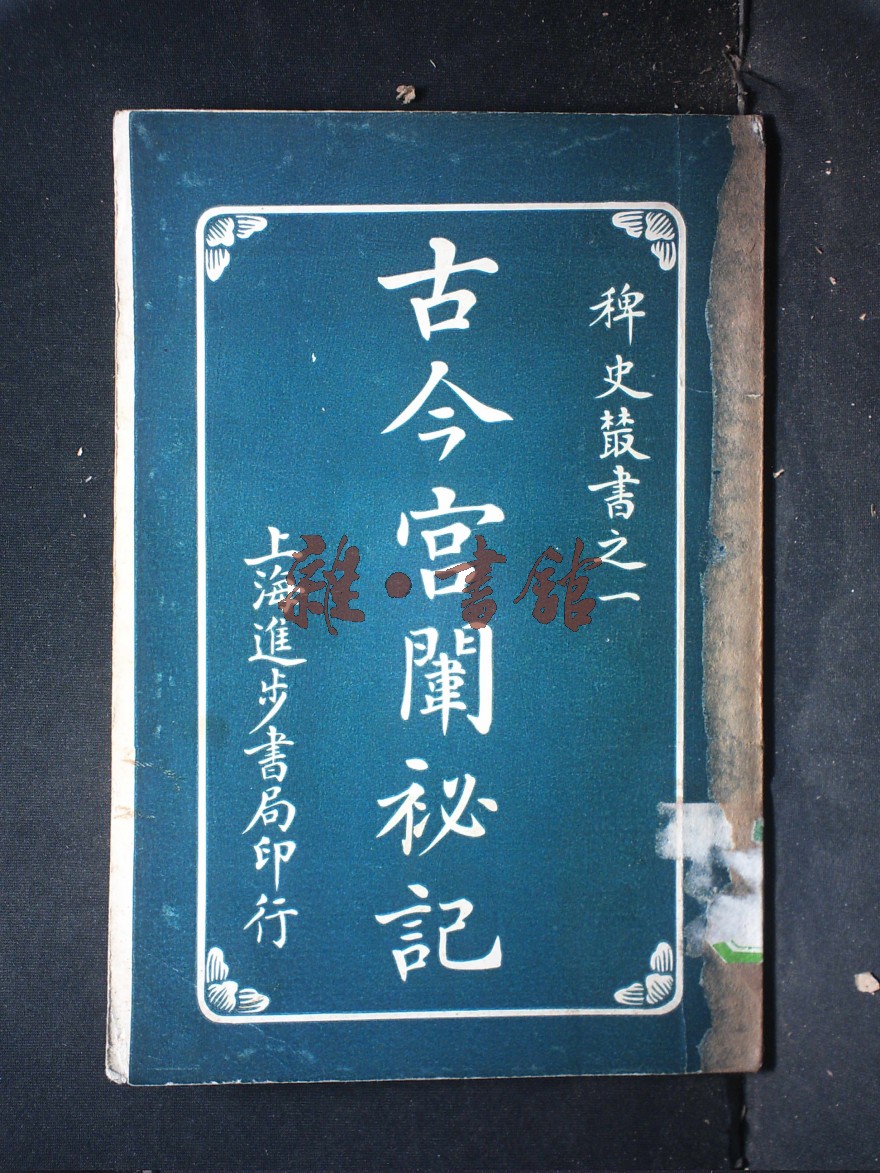 稗史叢書之一
古今宮闈秘記
上海進步書局印行
雜·書舘